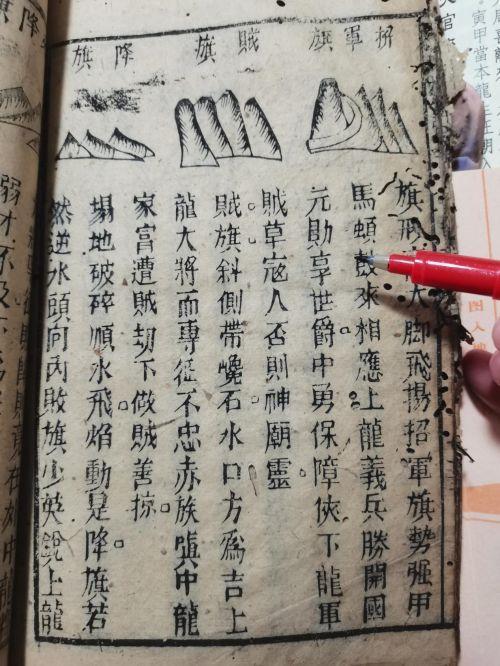 招軍旗
賊旗
降旗
旗形大腳飛揚招軍旗勢强甲
馬頓鼓來相應上龍義兵勝開國
元勛享世爵中勇保障俠下龍軍
賊草寇人否則神廟靈
賊旗斜側帶巉石水口方爲吉上
龍大將而專征不忠赤族嗔中龍
家富遭賊刼下做賊善掠
塌地破碎順水飛焰動是降旗若
然逆水頭向內敗旗少英銳上龍
弱才不及